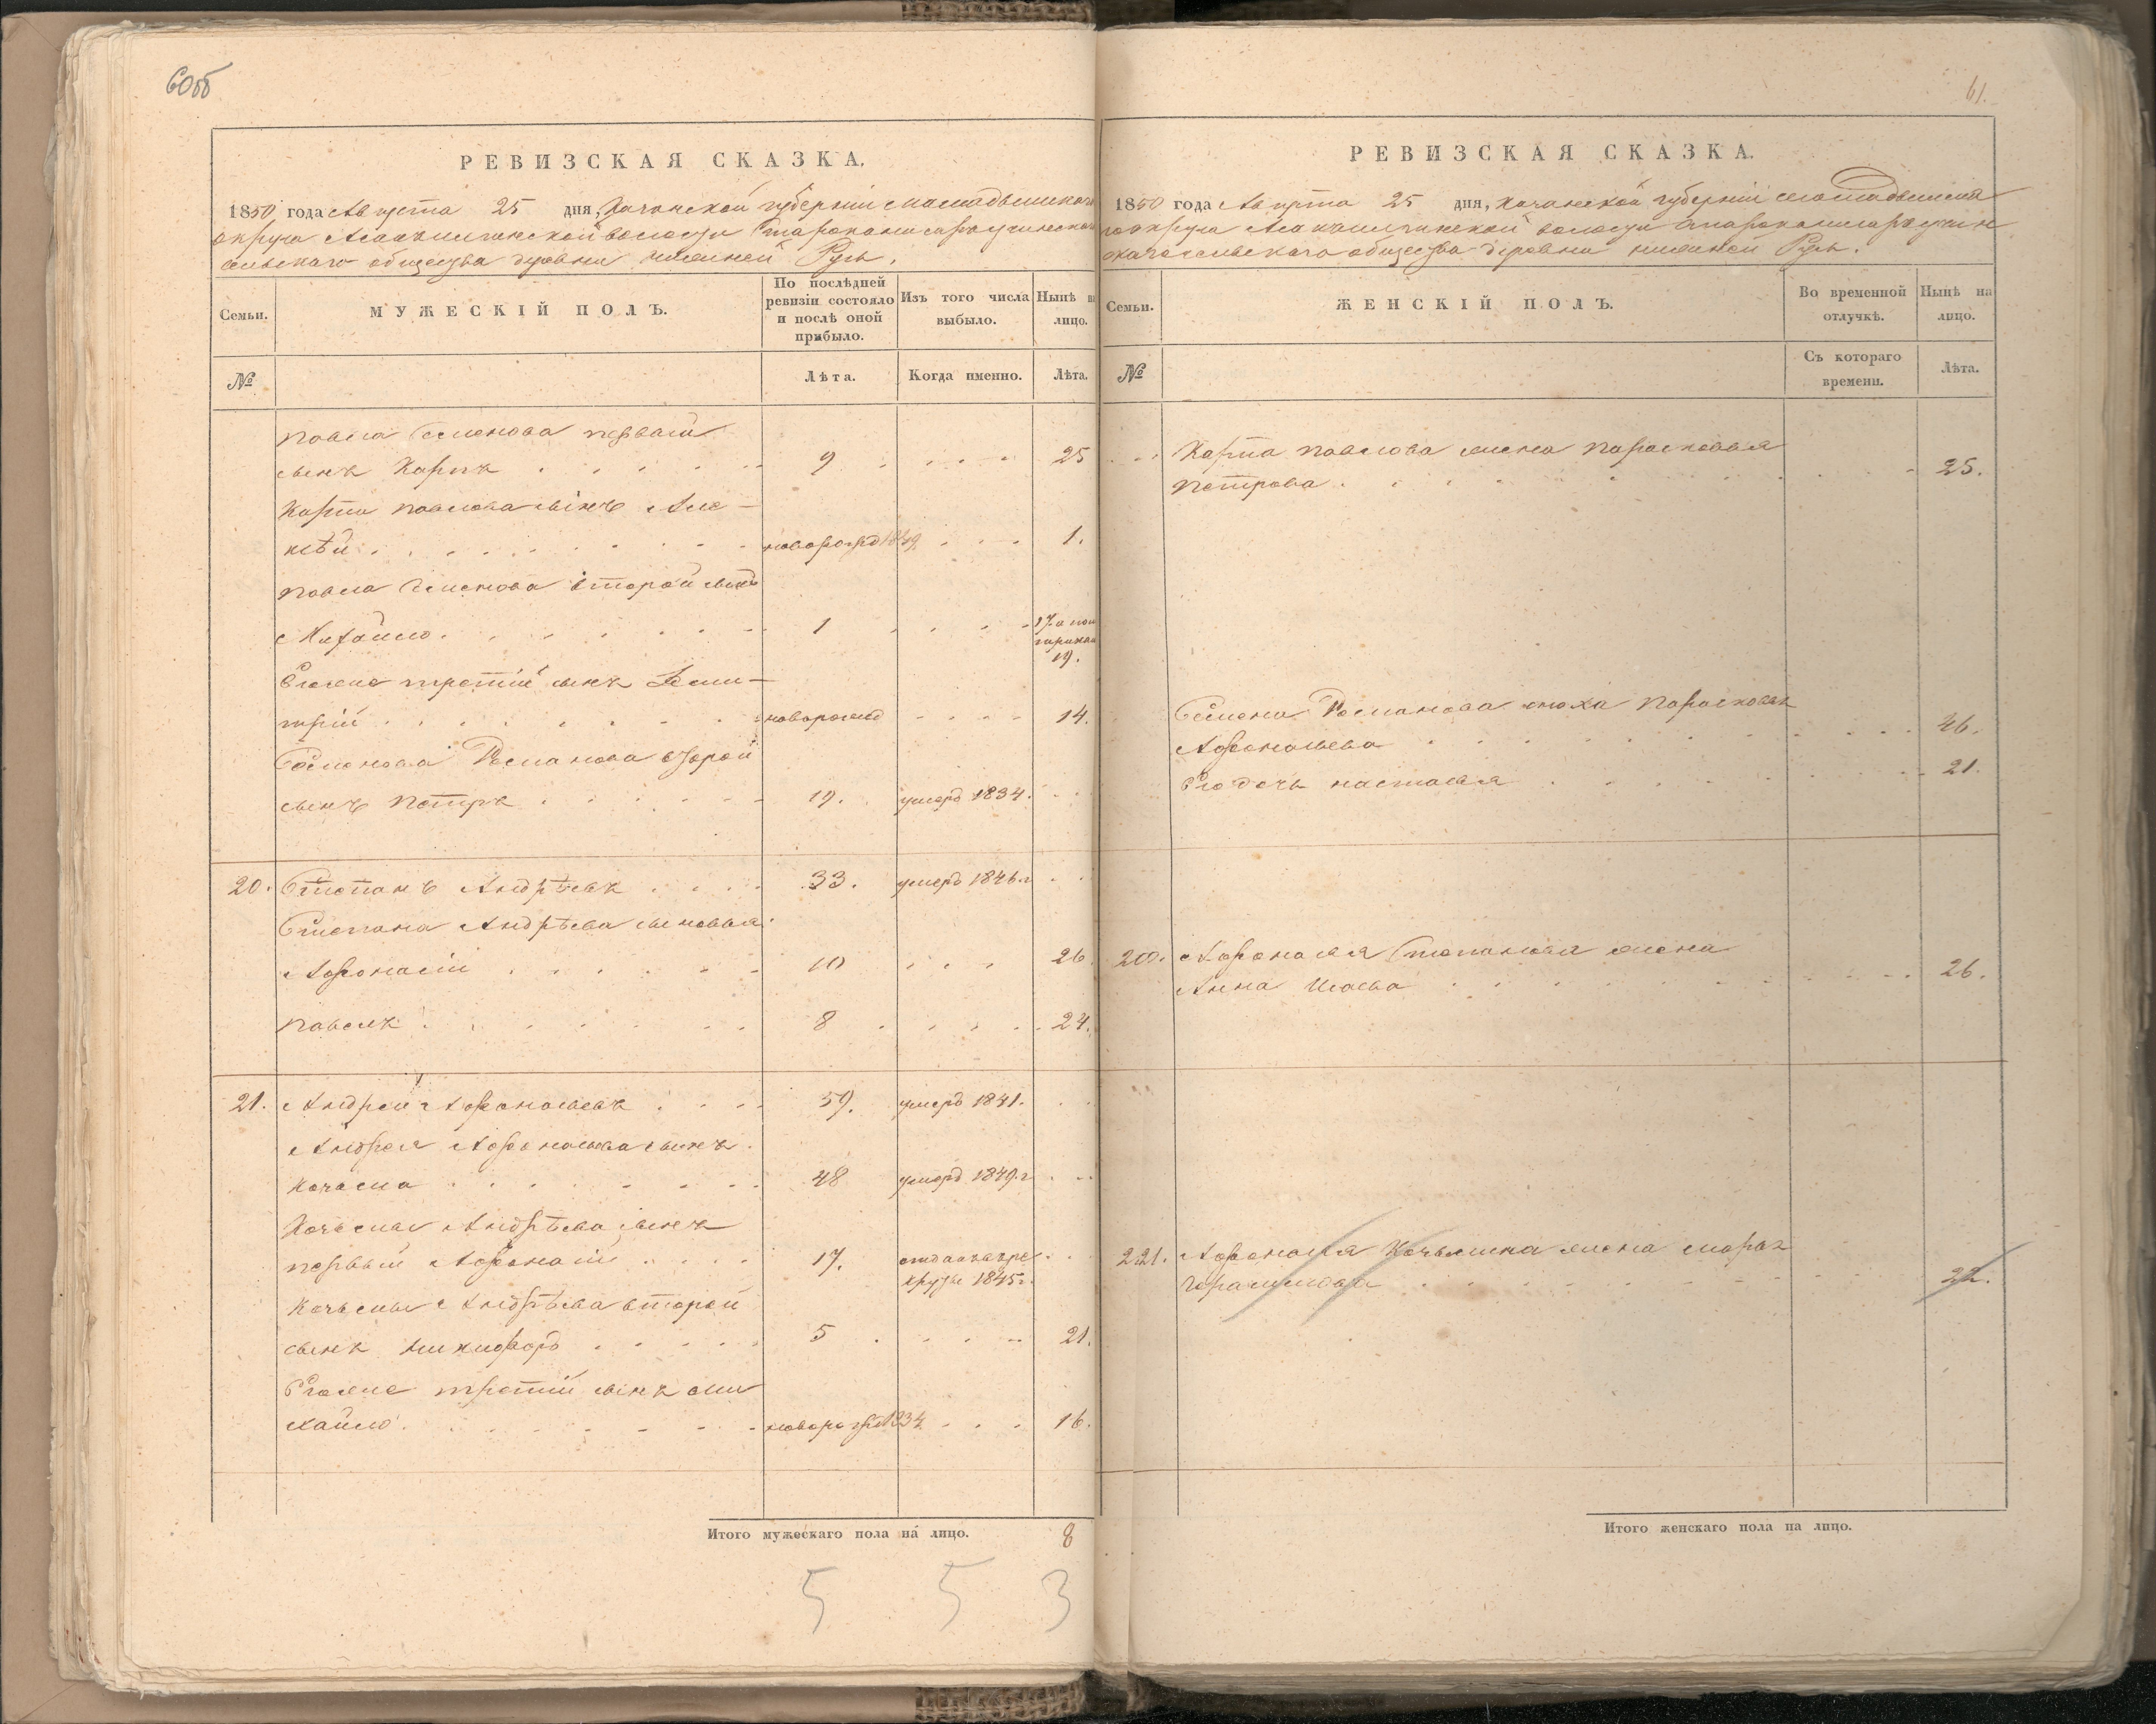 60об
РЕВИЗСКАЯ СКАЗКА.
1850 года Августа 25 дня, Казанской губернии Мамадышскаго
округа волости
сельскаго общества деревни нижней Русь.
Семьи.
МУЖЕСКІЙ ПОЛЪ.
По послѣдней ревизіи состояло и послѣ оной прибыло.
Изъ того числа выбыло.
Нынѣ на лицо.
№
Лѣта.
Когда именно.
Лѣта.
Павла Семенова первый
сынъ Карпъ 9 25
Карпа Павлова сынъ Але-
ксѣй новорожд 1849 1.
Павла Семенова второй сынъ
Михайло 1 17 а по
19.
Егоже третій сынъ Дми-
трій новорожд 14.
Семенова Романова второй
сынъ Петръ 19. умеръ 1834.
20. Степанъ Андрѣевъ 33. умеръ 1846 г
Степана Андрѣева сыновья
Афонасій 10 26
Павелъ 8 24.
21. Андрей Афонасьевъ 59. умеръ 1841.
Андрея Афонасьева сынъ
Козьма 48 умеръ 1849 г
Козьмы Андрѣева сынъ
первый Афонасій 17. отданъ въ ре
круты 1845 г.
Козьмы Андрѣева второй
сынъ Никифоръ 5 21.
Егоже третій сынъ Ми
хайло новорожд 1834 16.
Итого мужескаго пола на лицо. 8
5 5 3
61.
РЕВИЗСКАЯ СКАЗКА.
1850 года Августа 25 дня, Казанской губерніи Мамадышска
го округа волости
скаго сельскаго общества деревни нижней Русь.
Семьи.
ЖЕНСКІЙ ПОЛЪ.
Во временной отлучкѣ.
Нынѣ на лицо.
№
Съ котораго времени.
Лѣта.
Карпа Павлова жена Парасковья
Петрова 25.
Семена Романова сноха Парасковья
Афонасьева 46.
Ея дочь Настасья 21.
20. Афонасья Степанова жена
Анна Исаева 26.
21. Афонасья Козьмина жена Марья
Герасимова 22.
Итого женскаго пола на лицо.